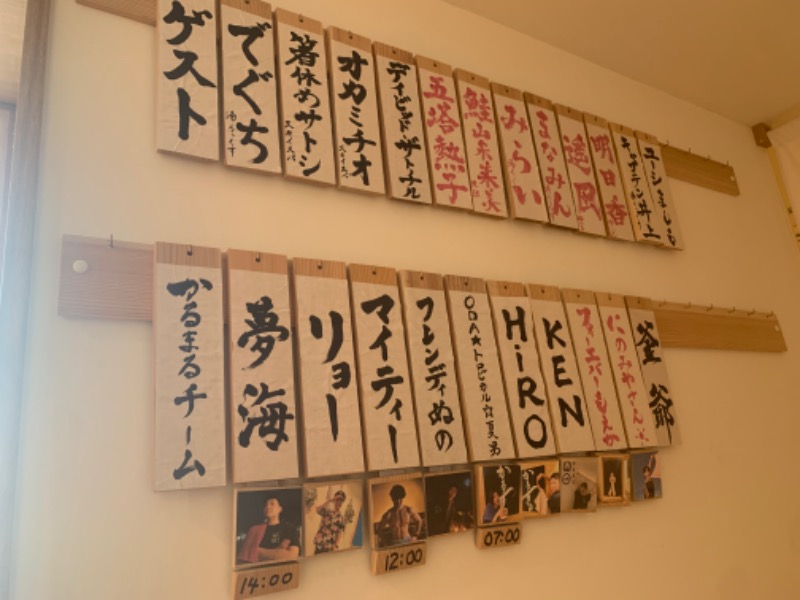 ゲスト
でぐち
箸休めサトシ
オカミチオ
デイビッド・ザトチル
五塔熱子
鮭山未来美
みらい
まなみん
遥風
明日香
キャサテン井上
かるまるチーム
夢海
リョー
マイティー
フレンディぬの
ODA★トロピカル☆夏男
HiRO
KEN
フォーエバーもえか
にのみやさん
釜爺
14:00
12:00
07:00